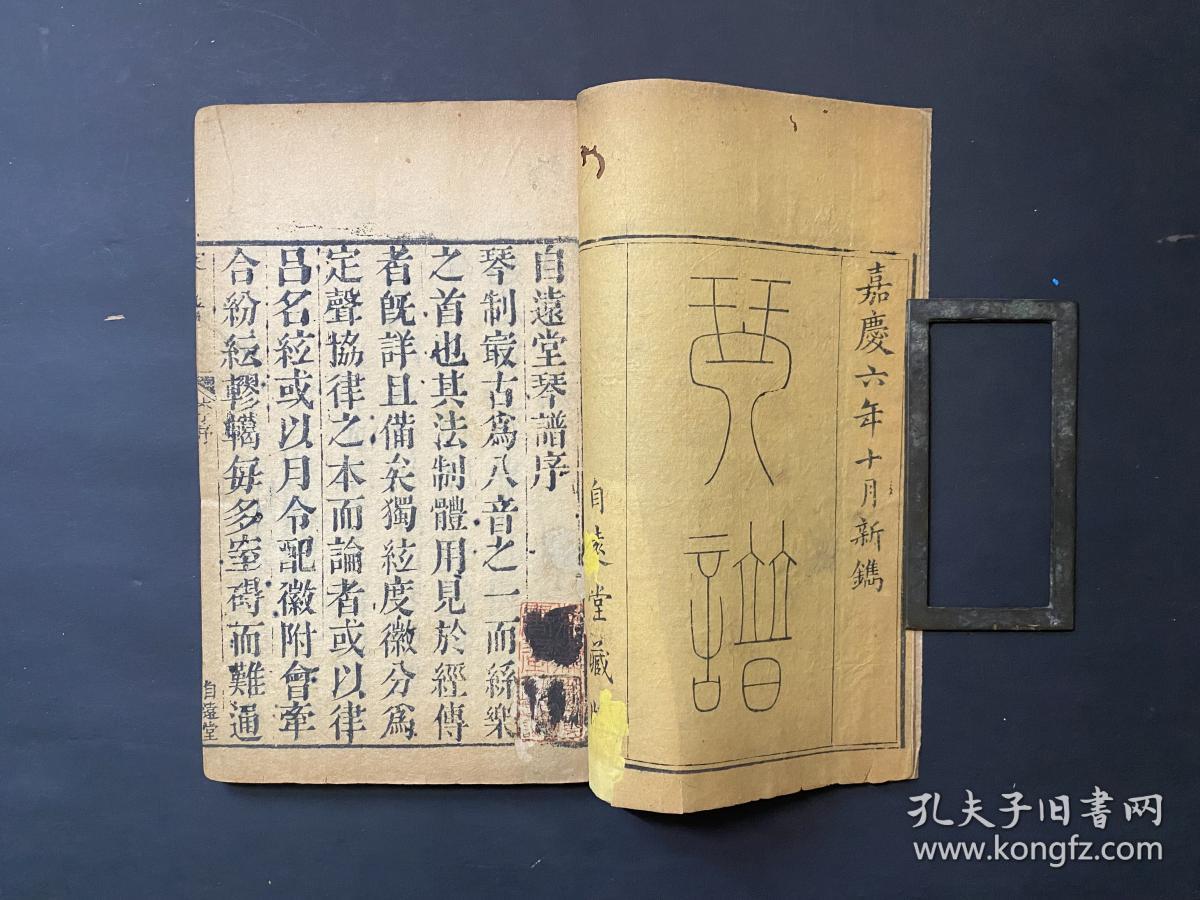 嘉慶六年十月新鐫
琴譜
自遠堂藏
自遠堂琴譜序
琴制㝡古爲八音之一而絲樂
之首也其法制體用見於經傳
者旣詳且備矣獨絃度徽分爲
定聲協律之本而論者或以律
呂名絃或以月令配徽附會牽
合紛紜轇轕每多窒碍而難通
自遠堂
孔夫子旧书网
www.kongfz.com